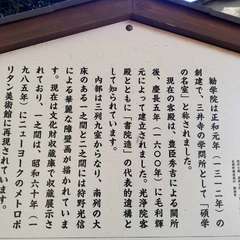 勧学院は正和元年(一三一二年)の
創建で、三井寺の学問所として「碩学
の名室」と称されました。
現在の客殿は、豊臣秀吉による闕所
後、慶長五年(一六〇〇年)に毛利輝
元によって建立されました。光浄院客
殿とともに「書院造」の代表的遺構と
して知られています。
内部は三列九室からなり、南列の大
床のある一之間と二之間には狩野光信
による華麗な障壁画が描かれていま
す。現在は文化財収蔵庫で収蔵展示さ
れており、一之間は、昭和六十年(一
九八五年)にニューヨークのメトロポ
リタン美術館に再現されています。